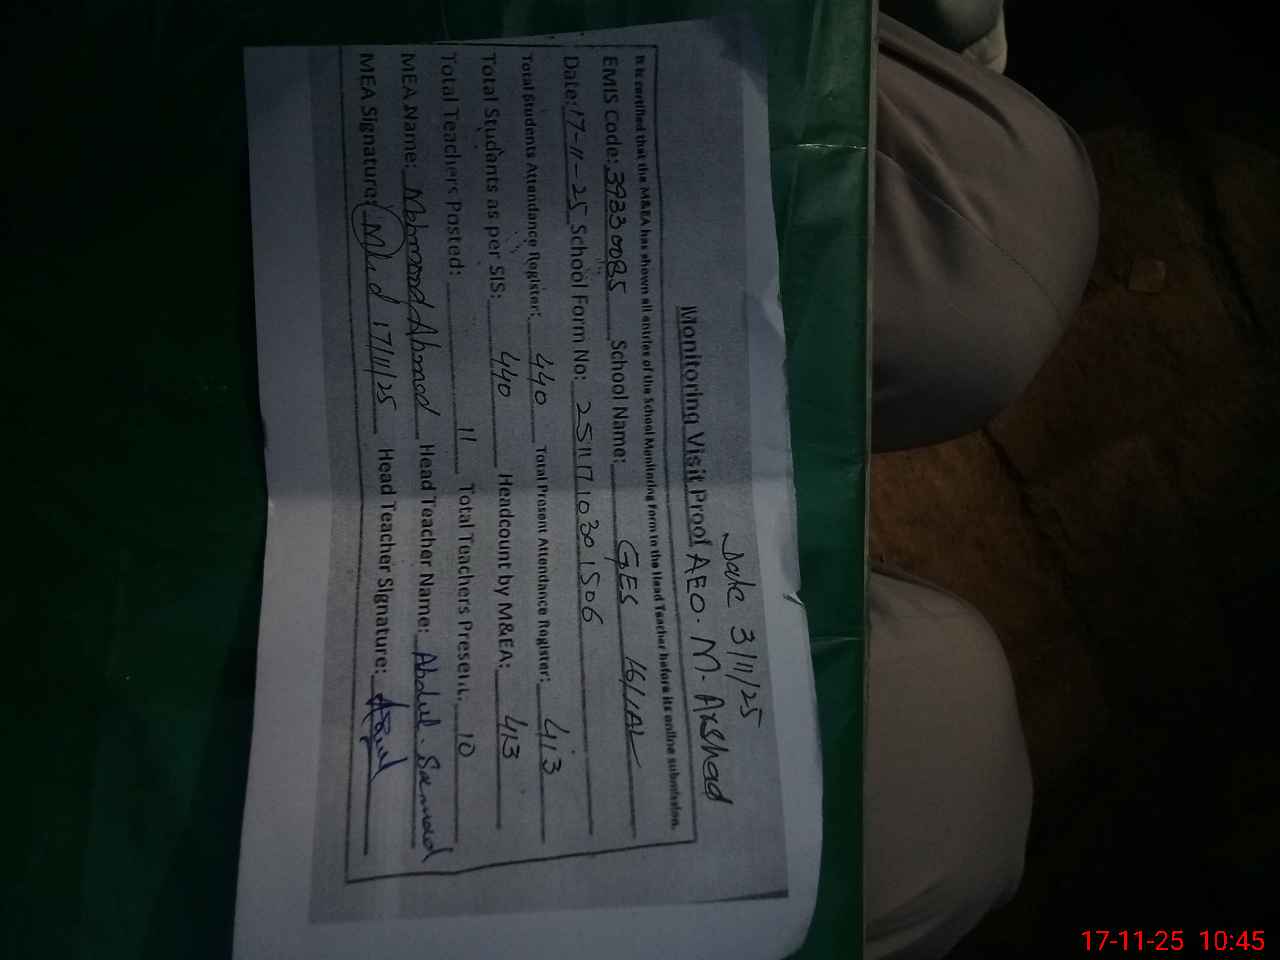 Date 3/11/25
Monitoring Visit Proof AEO. M. Arshad
It is certified that the M&EA has shown all entries of the School Monitoring Form to the Head Teacher before its online submission.
EMIS Code: 39330085 School Name: GES 16/1AL
Date: 17-11-25 School Form No: 25111710301506
Total Students Attendance Register: 440 Total Present Attendance Register: 413
Total Students as per SIS: 440 Headcount by M&EA: 413
Total Teachers Posted: 11 Total Teachers Present: 10
MEA Name: Mehmood Ahmad Head Teacher Name: Abdul Samad
MEA Signature: 17/11/25 Head Teacher Signature:
17-11-25 10:45